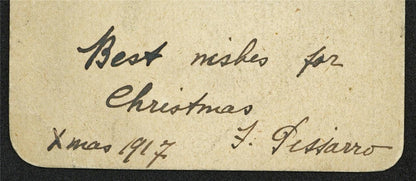 Best wishes for
Christmas
Xmas 1917 F. Pissarro